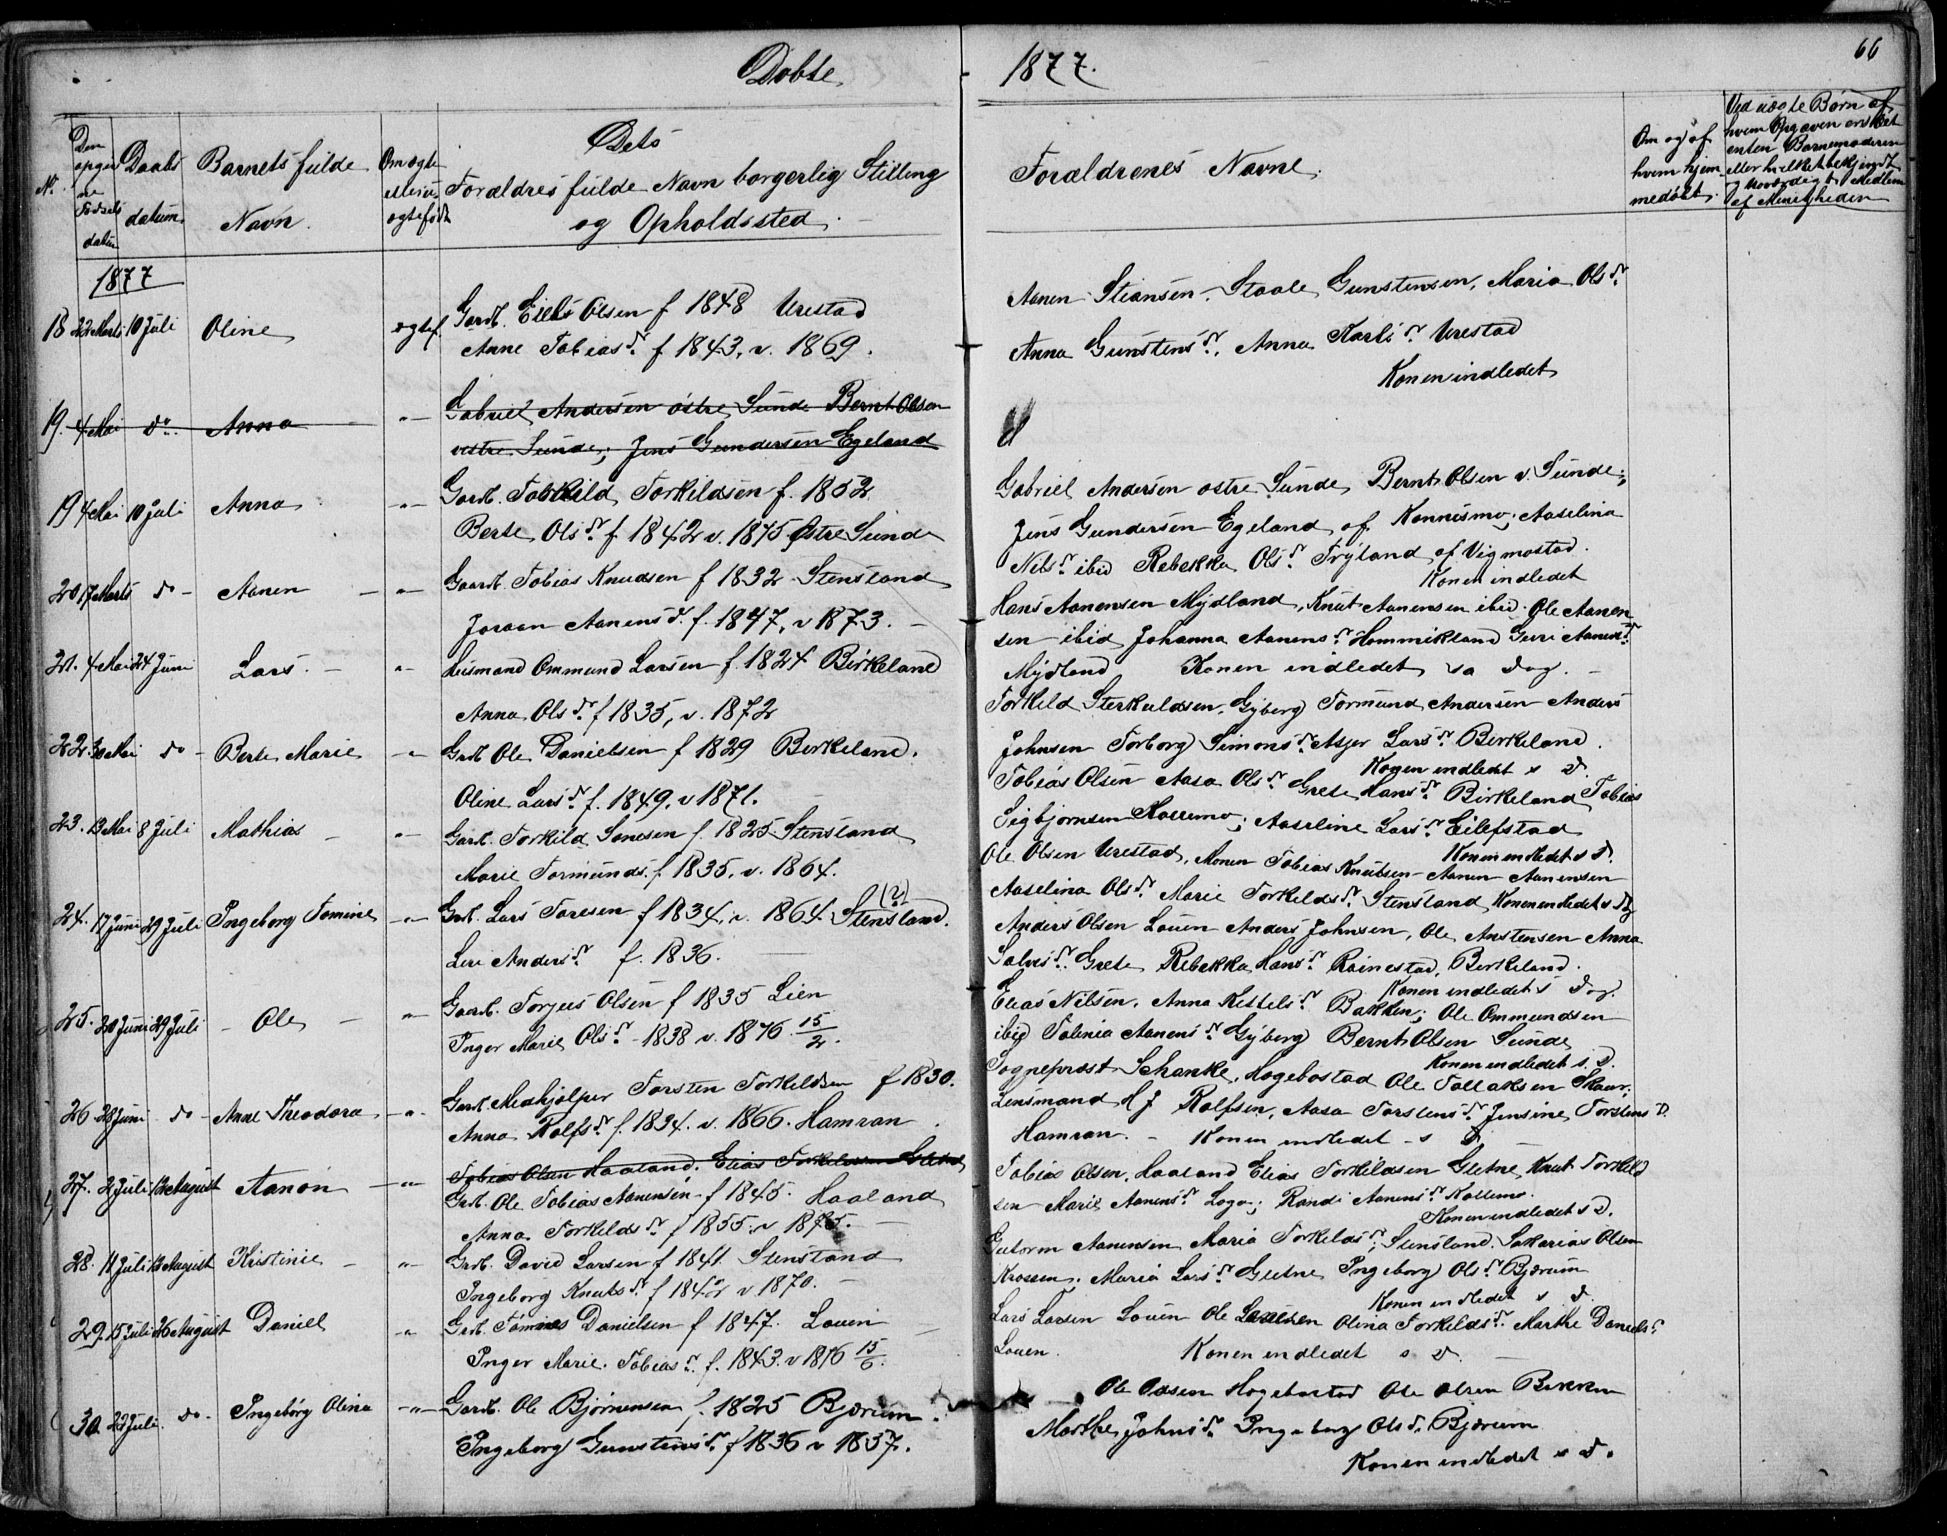 Døbte
1877.
66
No.
Den opgivne Fødsels datum
Daabs datum
Barnets fulde Navn.
Om ægte eller uægtefødt
Dets Forældres fulde Navn borgerlig Stilling og Opholdssted.
Forældrenes Navne.
Om og af hvem hjemmedøbt.
Ved uægte Børn af hvem Opgaven er skeet enten Barnemoderen eller hvilket bekjendt og troværdigt Medlem af Menigheden
1877
18 22 Marts 10 Juli Oline ægtef. Gaardb. Eilis Olsen f 1848 Urestad
Anne Tobiasdr. f 1843, v. 1869.
Aanen Steansen, Staale Gunstensen, Maria Olsdr
Anna Gunstensdr, Anna Karlsdr Urestad
Konen indledet
19. 4 Mai do. Anna "— Gabriel Andersen østre Sunde Bernt Olsen
vestre Sunde; Jens Gundersen Egeland
19 4 Mai 10 Juli Anna "— Gardb. Torkild Torkildsen f. 1852
Berte Olsdr f. 1842 v. 1875 Østre Sunde
Gabriel Andersen østre Sunde, Bernt Olsen v. Sunde;
Jens Gundersen Egeland af Konnismo; Aaselina
Nilsdr ibid Rebekka Olsdr Trÿland af Vigmostad.
Konen indledet
20 17 Marts do — Aanen — "— Gaardb. Tobias Knudsen f 1832 Stensland
Joraan Aanensd. f. 1847, v 1873. —
Hans Aanensen Mÿdland, Knut Aanensen ibid. Ole Aanen
sen ibid Johanna Aanensdr Hommikland Guri Aanensdr
Mÿdland Konen indledet sa Dag. —
21. 4 Mai 24 Juni Lars. — " Husmand Ommund Larsen f. 1824 Birkeland
Anna Olsdr f 1835, v. 1872
Torkild Sterkuldsen, Gÿberg Tormund Andersen Anders
Johnsen Torborg Simonsdr Asjer Larsdr Birkeland.
Konen indledet s D.
22. 30 Mai do — Berte Marie "— Grdb Ole Danielsen f 1829 Birkeland.
Oline Larsdr f. 1849, v 1871. —
Tobias Olsen Aasa Olsdr Grete Hansdr Birkeland Tobias
Sigbjørnsen Kollemo; Aaseline Larsdr Eilefstad
Konen indledet s D.
23. 13 Mai 8 Juli Mathias — "— Gardb. Torkild Sønesen f. 1825 Stensland
Marie Tormundsd. f 1835, v. 1864.
Ole Olsen Urestad, Aanen Tobias Knutsen Aanen Aanensen
Aaselina Olsdr. Marie Torkildsdr. Stensland Konen indledet s Dg
24. 17 Juni 29 Juli Ingeborg Tomine "— Grdb. Lars Taresen f 1834, v. 1864 Stensland. (?)
Live Andersdr. f. 1836. —
Anders Olsen Louen Anders Johnsen, Ole Anstensen Anna
Salvesdr. Grete Rebekka Hansdr Roinestad, Birkeland.
Konen indledet s Dag.
25. 20 Juni 29 Juli — Ole — "— Gaardb. Torjus Olsen f 1835 Lien
Inger Marie Olsdr — 1838 v. 1876 15/2.
Elias Nilsen, Anna Kittelsdr Bakken; Ole Ommundsen
ibid Tolinia Aanensdr Gÿberg Bernt Olsen Sunde
Konen indledet s. D.
26 28 Juni do — Anne Theodora "— Gardb. Medhjælper Torsten Torkildsen f 1830.
Anna Rolfsdr f. 1834. v. 1866. Hamran.
Sogneprest Schanke, Hægebostad Ole Tollaksen Skaar;
Lensmand H J Rolfsen, Aasa Torstensdr Jensine Torstens D.
Hamran. — Konen indledet — s D —
27. 2 Juli 12 August Aanon — "— Tobias Olsen Haaland, Elias Torkildsen Gletne
Grdb. Ole Tobias Aanensen f 1845. Haaland
Anna Torkildsdr f 1855. v 1875. —
Tobias Olsen, Haaland Elias Torkildsen Gletne, Knut Torkild
sen Marie Aanensdr Loga; Randi Aanensdr Kollemo.
Konen indledet s D.
28. 11 Juli 12 August Kristinie — "— Grdb. David Larsen f 1841. Stensland
Ingeborg Knutsdr. f 1842 v 1870. —
Gutorm Aanensen Maria Torkildsdr; Stensland. Sakarias Olsen
Krossen. Maria Larsdr Gletne, Ingeborg Olsdr Bjærum
Konen indledet s D.
29. 15 Juli 26 August Daniel " Grdb. Tønnes Danielsen f 1847. Louen —
Inger Marie. Tobiasdr. f. 1843. v 1876 15/6.
Lars Larsen Louen Ole Larsen Olina Torkildsdr. Marthe Danielsdr
Louen. Konen indledet s D. —
30. 22 Juli. do. Ingebørg Olina — "— Gardb. Ole Bjørnensen f. 1825 Bjærum.
Ingeborg Gunstensdr f 1836 v 1857.
Ole Olsen Hægebostad Ole Olsen Bakken
Marthe Johnsdr Ingeborg Olsd. Bjærum
Konen indledet s D.